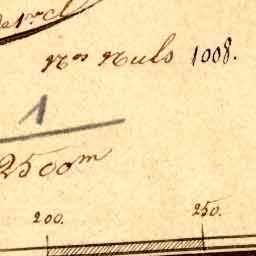 Nos Nuls 1008.
1
2500m
200. 250.